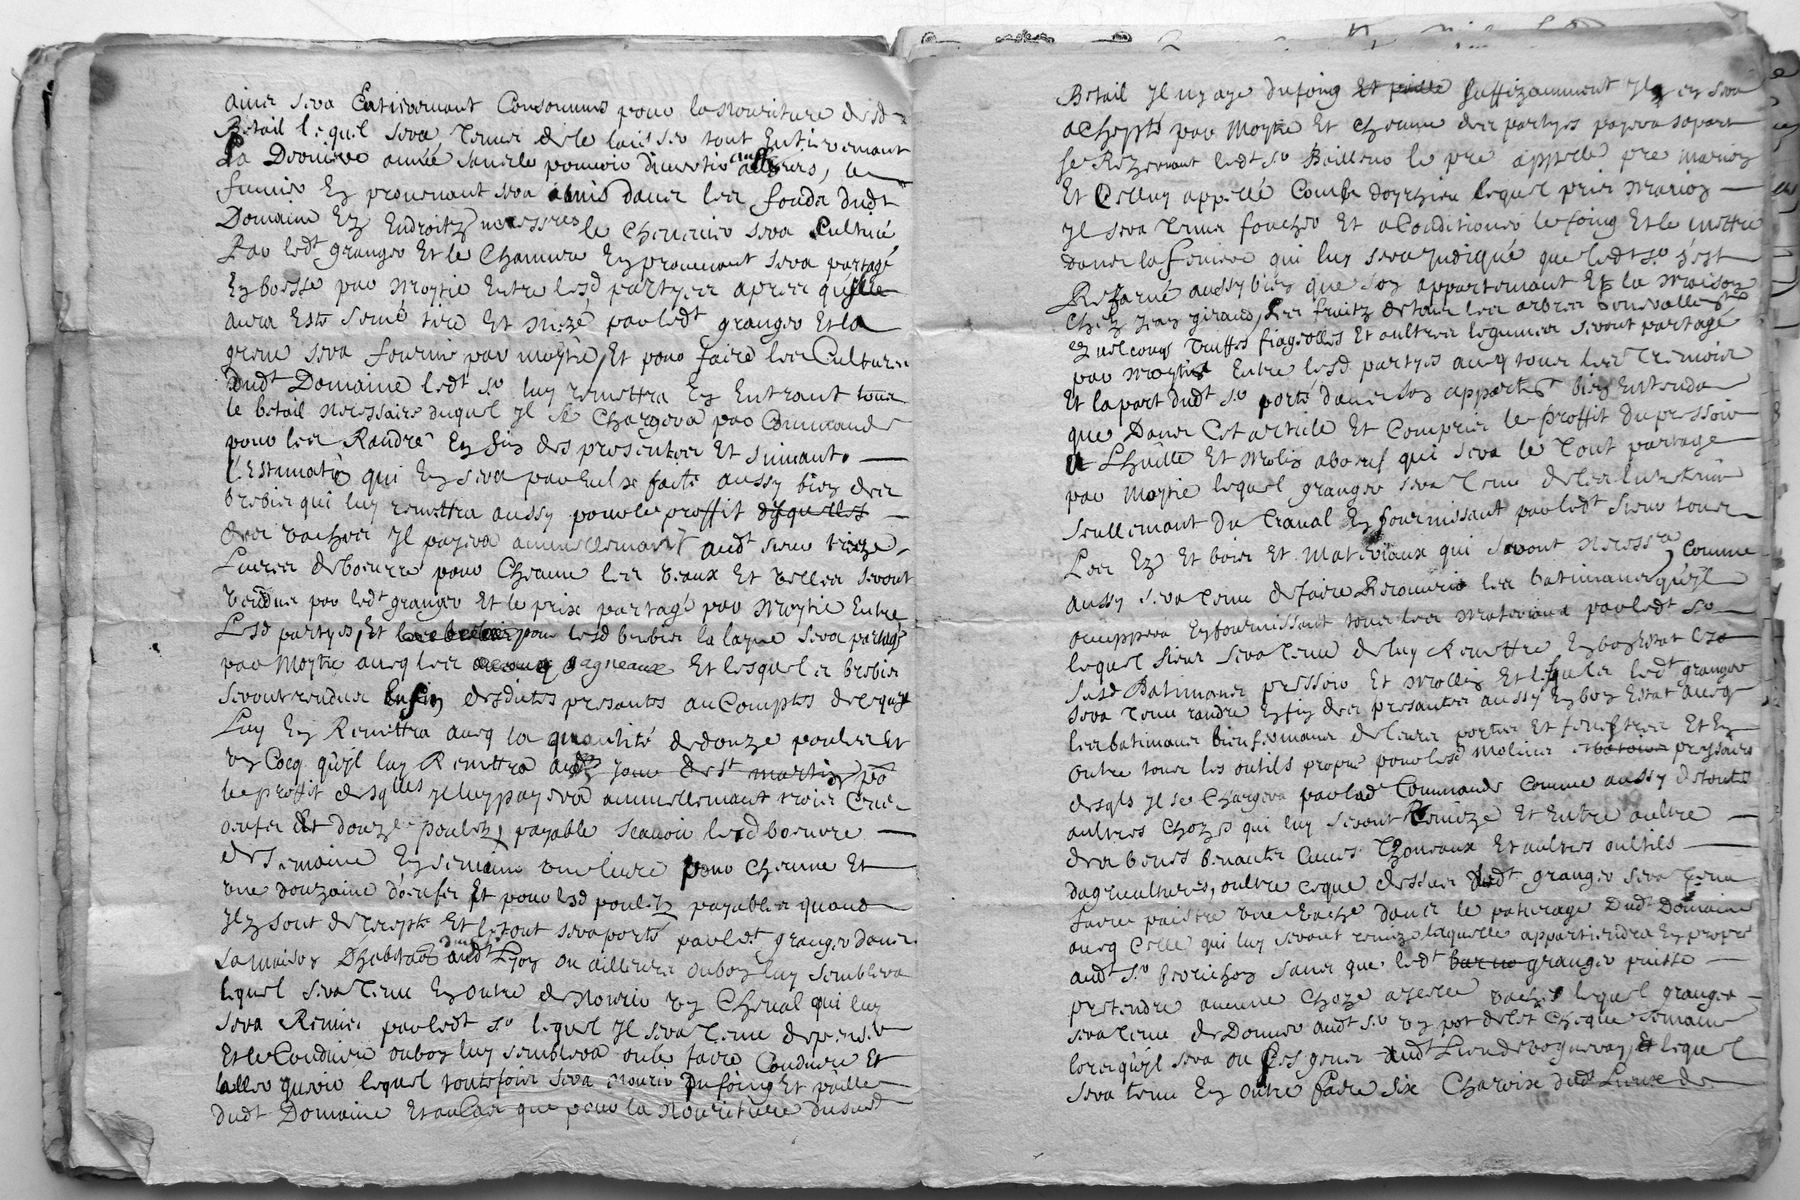 ainsi sera Entierement Consommé pour la nouriture desd
Bétail lequel sera Tenu de le laisser tout Entierement
La Derniere année sans le pouvoir divertir ailleurs, le
fumier En provenant sera mis dans les fonds dudt
Domaine Ez Endroitz necessres le Chenevier sera Cultivé
Par ledt granger Et le Chanvre En provenant sera partagé
En boesse par Moytié Entre lesd partyes apres qu'elle
aura Esté semé tiré Et Nezé par ledt granger Et la
grene sera fournie par moytié, Et pour faire les Cultures
dudt Domaine ledt sr luy remettra En Entrant tout
le betail necessaire duquel Jl se Chargera par Commande
pour les Randre En fin des presentes Et suivant
l'Estimatio qui En sera par Eux faite aussy bien des
brebis qui luy remettra aussy pour le proffit desquelles
des vaches Jl payera annuellemant audt sieur treze
Livres de beurre pour Chacune les veaux Et velles seront
vendus par ledt granger Et le prix partagé par Moytié Entre
Lesd partyes, Et les brebis pour lesd brebis la layne sera partagé
par Moytié avec les agneaux Et lesquelles brebis
seront rendues En fin desdites presantes au Comptes de lequel
Luy En Remettra avec la quantité de douze poules Et
un Cocq qu'yl luy Remettra audt jour de st martin pr
le proffit desquels Jl luy payera annuellemant trois Cens
oeufs Et douze poulets, payable scavoir lesd beurre
de semaine En semaine une livre pour Chacune Et
une douzaine d'oeufs Et pour lesd poulets payables quand
Jlz sont de recepte Et le tout sera porté par ledt granger dans
sa maison D'habitaon audt Lyon ou ailleurs ou bon luy semblera
lequel sera Tenu En outre de Nourir un Cheval qui luy
sera Remis par ledt sr lequel Jl sera Tenu de penser
Et le Conduire ou bon luy semblera ou le faire Conduire Et
aller querir lequel toutefois sera nouri du foing Et paille
dudt Domaine Et au Cas que pour la Nouriture dudit
Betail Jl ny aye du foing Et paille suffizamment Jl y en sera
achepté par Moytié Et Chacune des partyes payera sa part
se Rezervant ledt sr Bailleur le pré appellé pré Marion
Et Celluy appellé Combe lequel prés Marion
Jl sera Tenu faucher Et aConditioner le foing Et le mettre
dans la feniere qui luy sera Judiqué que ledt sr s'est
Rezarvé aussy bien que son appartemant Et la Maison
Chez Jean giraud, Les fruitz de tous les arbres
quelconqs Truffes fiageolles Et aultres legumes seront partagé
par Moytié Entre lesd partyes avecq tous les Tremois
Et la part dudt sr porté dans son appartemt bien Entendu
que Dans Cet article Et Compris le proffit du pressoir
a L'huille Et Molin a boeuf qui sera le Tout partagé
par Moytié lequel granger sera Tenu de les
seullemant du Travail En fournissant par ledt sieur tous
Les Et bois Et Materiaux qui seront Necessres, Comme
aussy sera tenu de faire Recouvrir les batimans qu'yl
occuppera En fournissant tous les materiaux par ledt sr
lequel sieur sera Tenu de luy Remettre En bon Estat
susd Batimans pressoir Et Mollin Et lesquels ledt granger
sera Tenu randre En fin des presantes aussy En bon Estat avecq
les batimans bien fermans de leurs portes Et fenestres Et En
outre tous les outils propre pour lesd Molins et pressoirs
desqls Jl se Chargera par lad Commande Comme aussy de toutes
aultres Choze qui luy seront Remize Et Entre aultre
des benes Cuves Thoneaux Et aultres oultils
dagriculteures, oultre ceque dessus ledt granger sera Tenu
faire paistre une vache dans le paturage dudt Domaine
avecq Celle qui luy seront remize laquelle appartiendra En propre
audt sr sans que ledt granger puisse
pretendre aucune Choze a Jcelle vache lequel granger
sera Tenu de Donner audt sr un pot de let Cheque semaine
lorsqu'yl sera ou ses gens audt Lieu de Et lequel
sera tenu En outre faire six Charoix dudt Lieu de